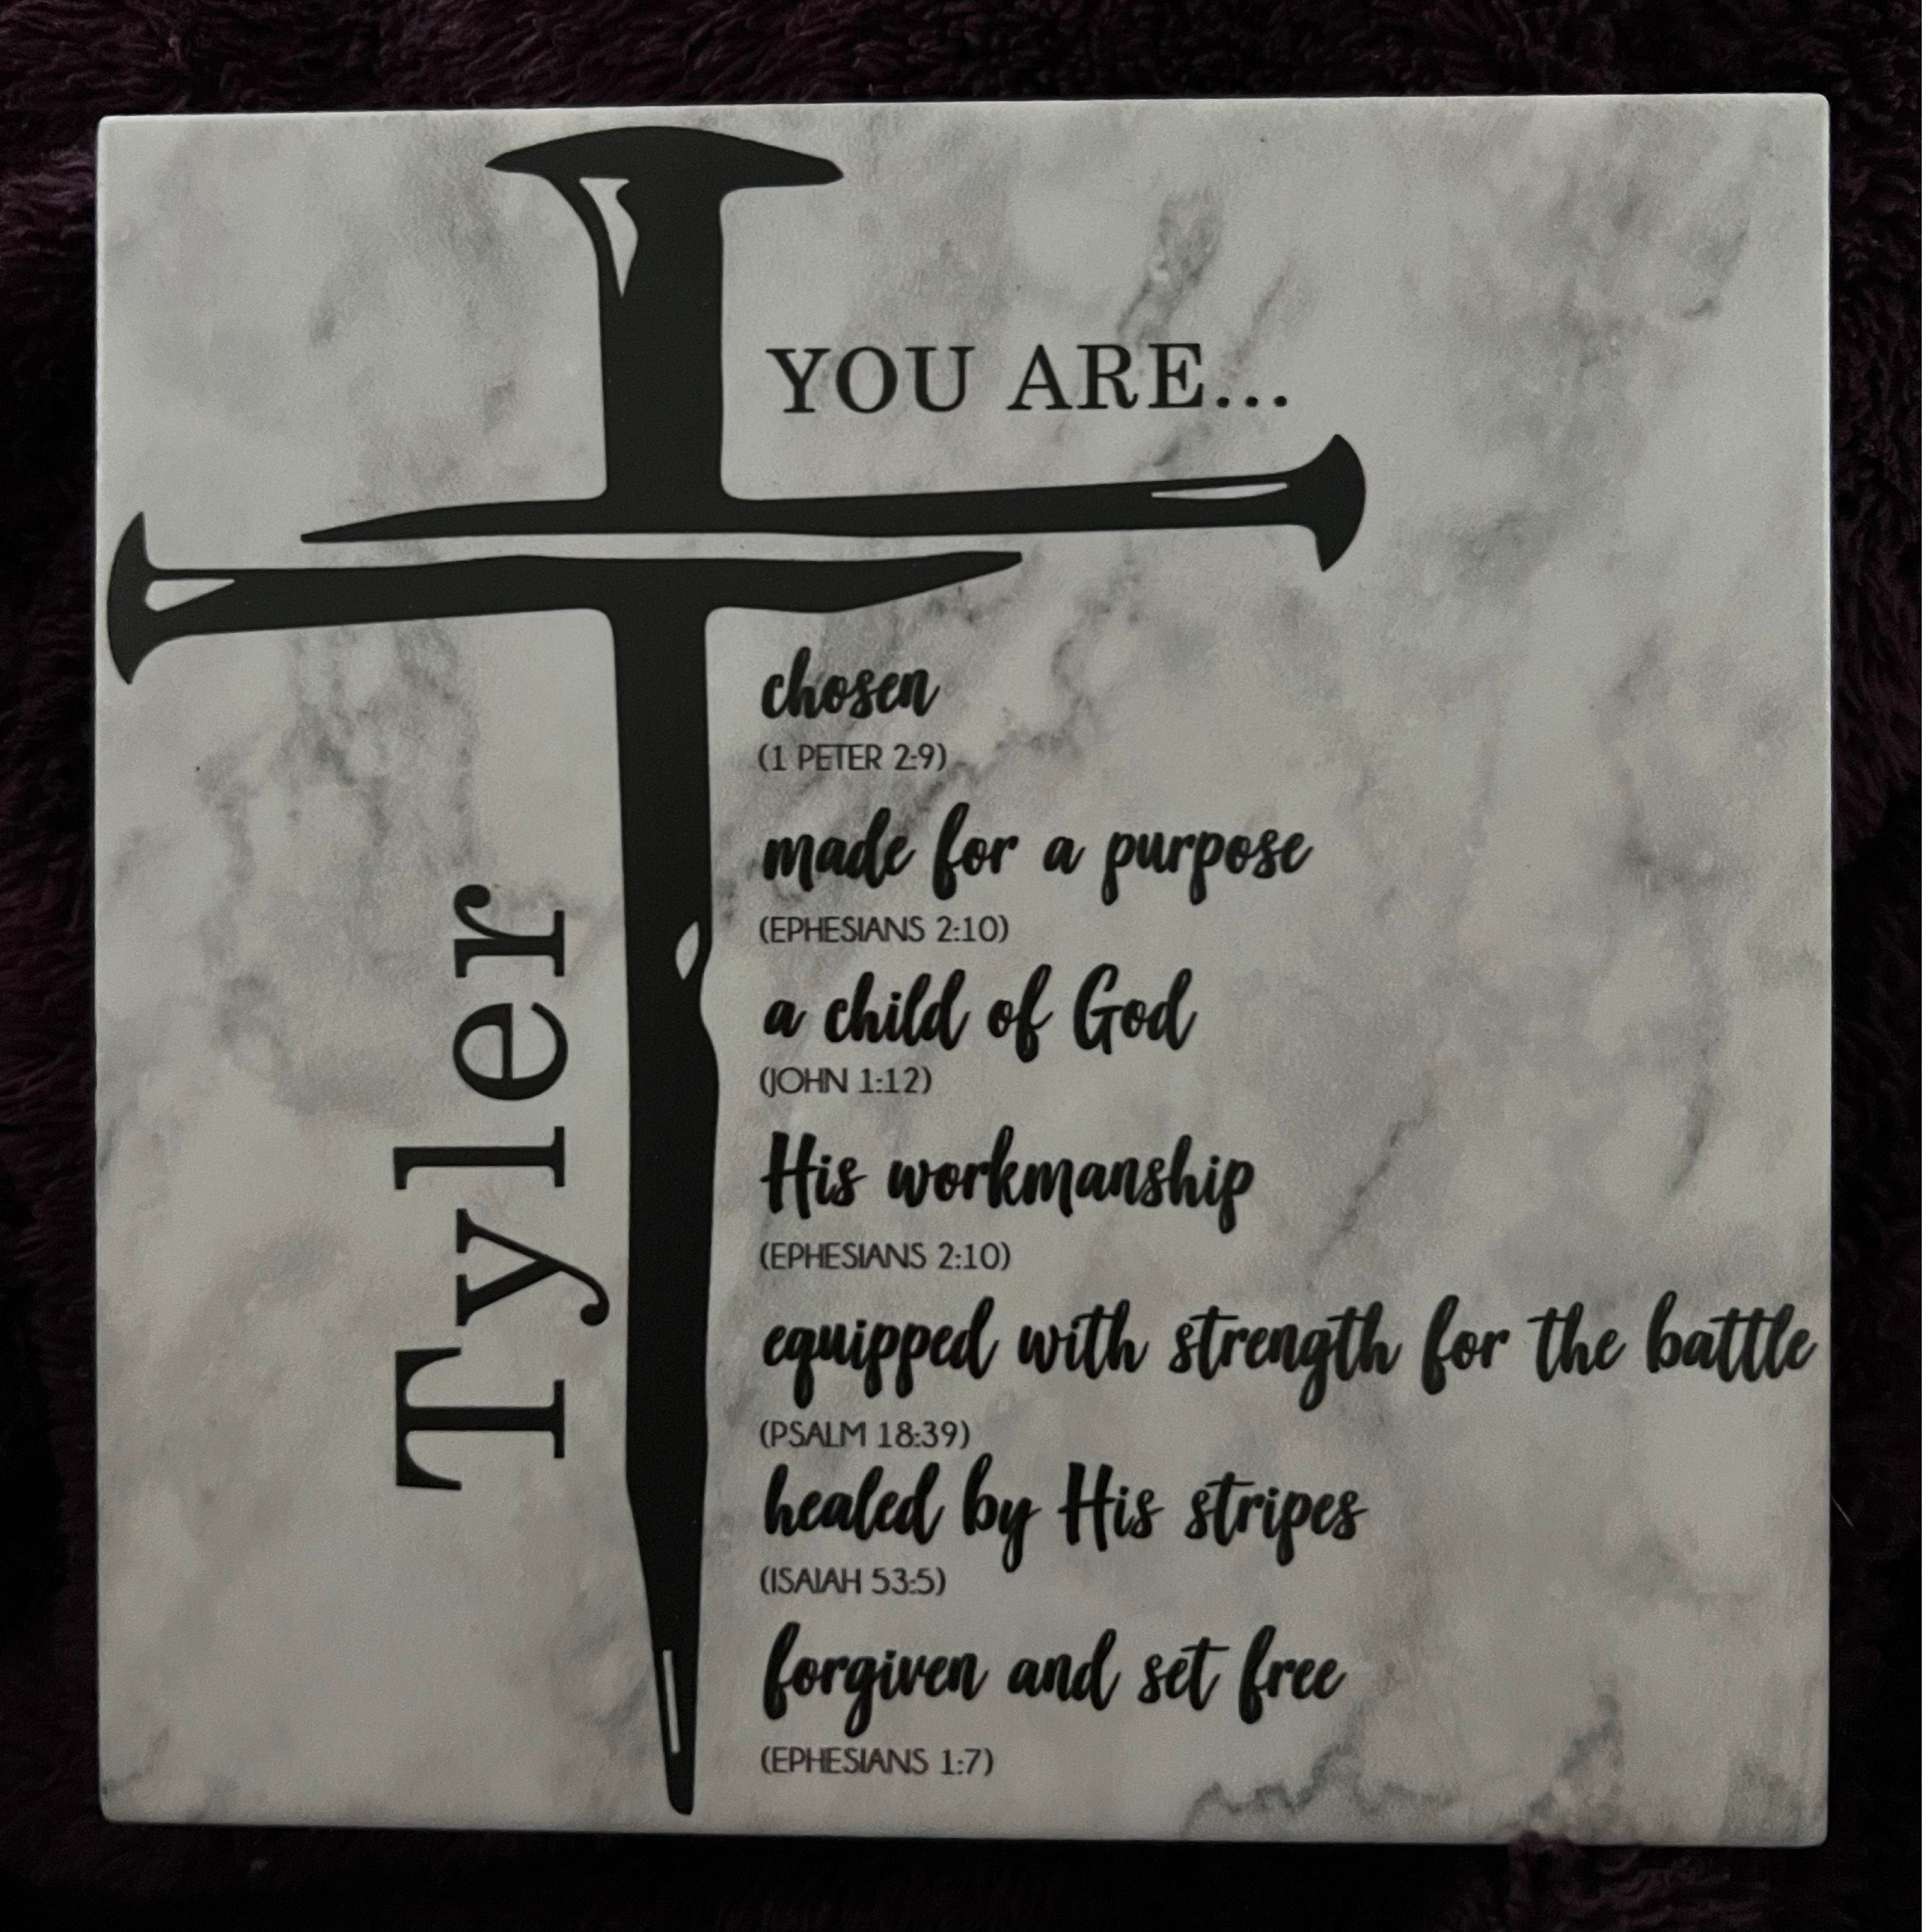 YOU ARE...
chosen
(1 PETER 2:9)
made for a purpose
(EPHESIANS 2:10)
a child of God
(JOHN 1:12)
His workmanship
(EPHESIANS 2:10)
equipped with strength for the battle
(PSALM 18:39)
healed by His stripes
(ISAIAH 53:5)
forgiven and set free
(EPHESIANS 1:7)
Tyler